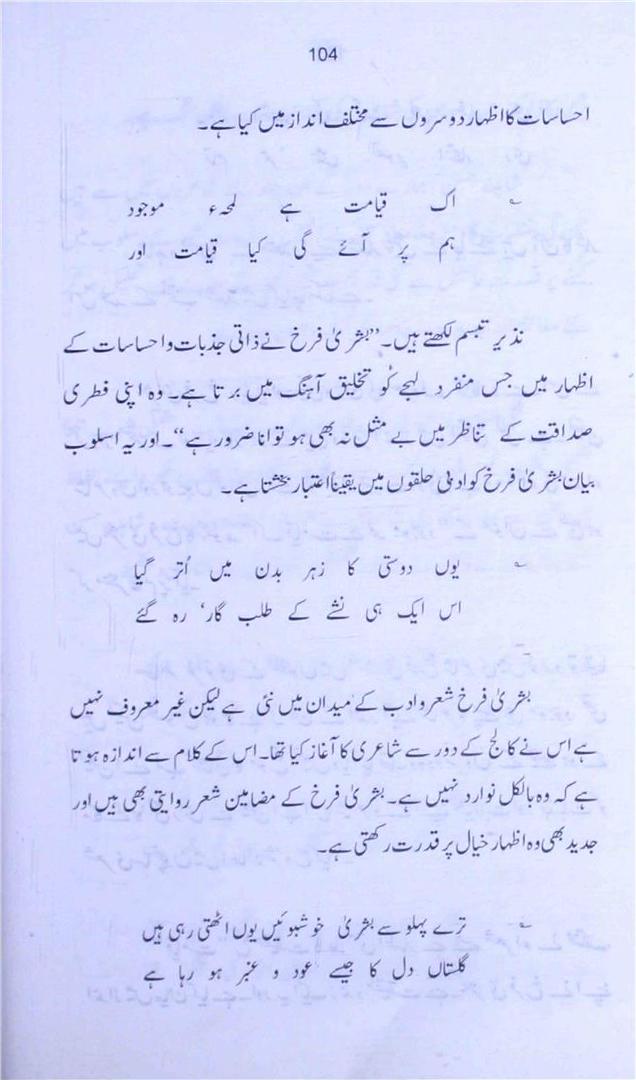 104
احساسات کا اظہار دوسروں سے مختلف انداز میں کیا ہے۔
؎ اک قیامت ہے لمحہء موجود
ہم پر آئے گی کیا قیامت اور
نذیر تبسم لکھتے ہیں۔ ”بشریٰ فرخ نے ذاتی جذبات و احساسات کے
اظہار میں جس منفرد لہجے کو تخلیق آہنگ میں برتا ہے۔ وہ اپنی فطری
صداقت کے تناظر میں بے مثل نہ بھی ہو توانا ضرور ہے“۔ اور یہ اسلوب
بیان بشریٰ فرخ کو ادبی حلقوں میں یقیناً اعتبار بخشتا ہے۔
؎ یوں دوستی کا زہر بدن میں اُتر گیا
اس ایک ہی نشے کے طلب گار‘ رہ گئے
بشریٰ فرخ شعر و ادب کے میدان میں نئی ہے لیکن غیر معروف نہیں
ہے اس نے کالج کے دور سے شاعری کا آغاز کیا تھا۔ اس کے کلام سے اندازہ ہوتا
ہے کہ وہ بالکل نووارد نہیں ہے۔ بشریٰ فرخ کے مضامین شعر روایتی بھی ہیں اور
جدید بھی وہ اظہار خیال پر قدرت رکھتی ہے۔
؎ ترے پہلو سے بشریٰ خوشبوئیں یوں اٹھتی رہی ہیں
گلستاں دل کا جیسے عود و عنبر ہو رہا ہے